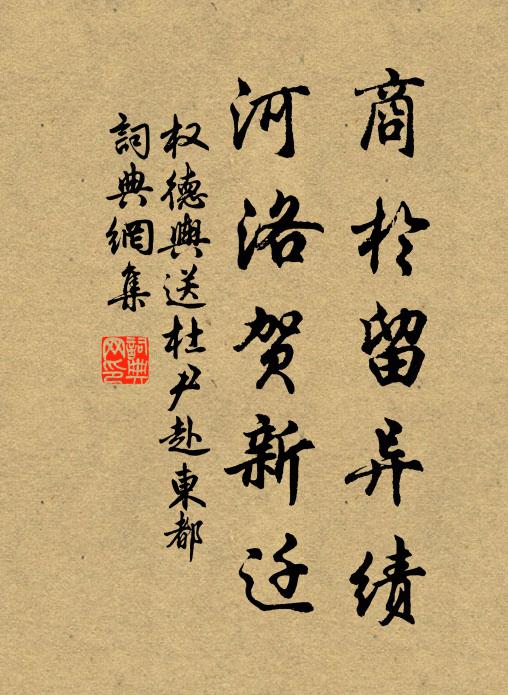 商於留异绩
河洛贺新迁
权德舆送杜尹赴東都
詞典網集
詞典网印